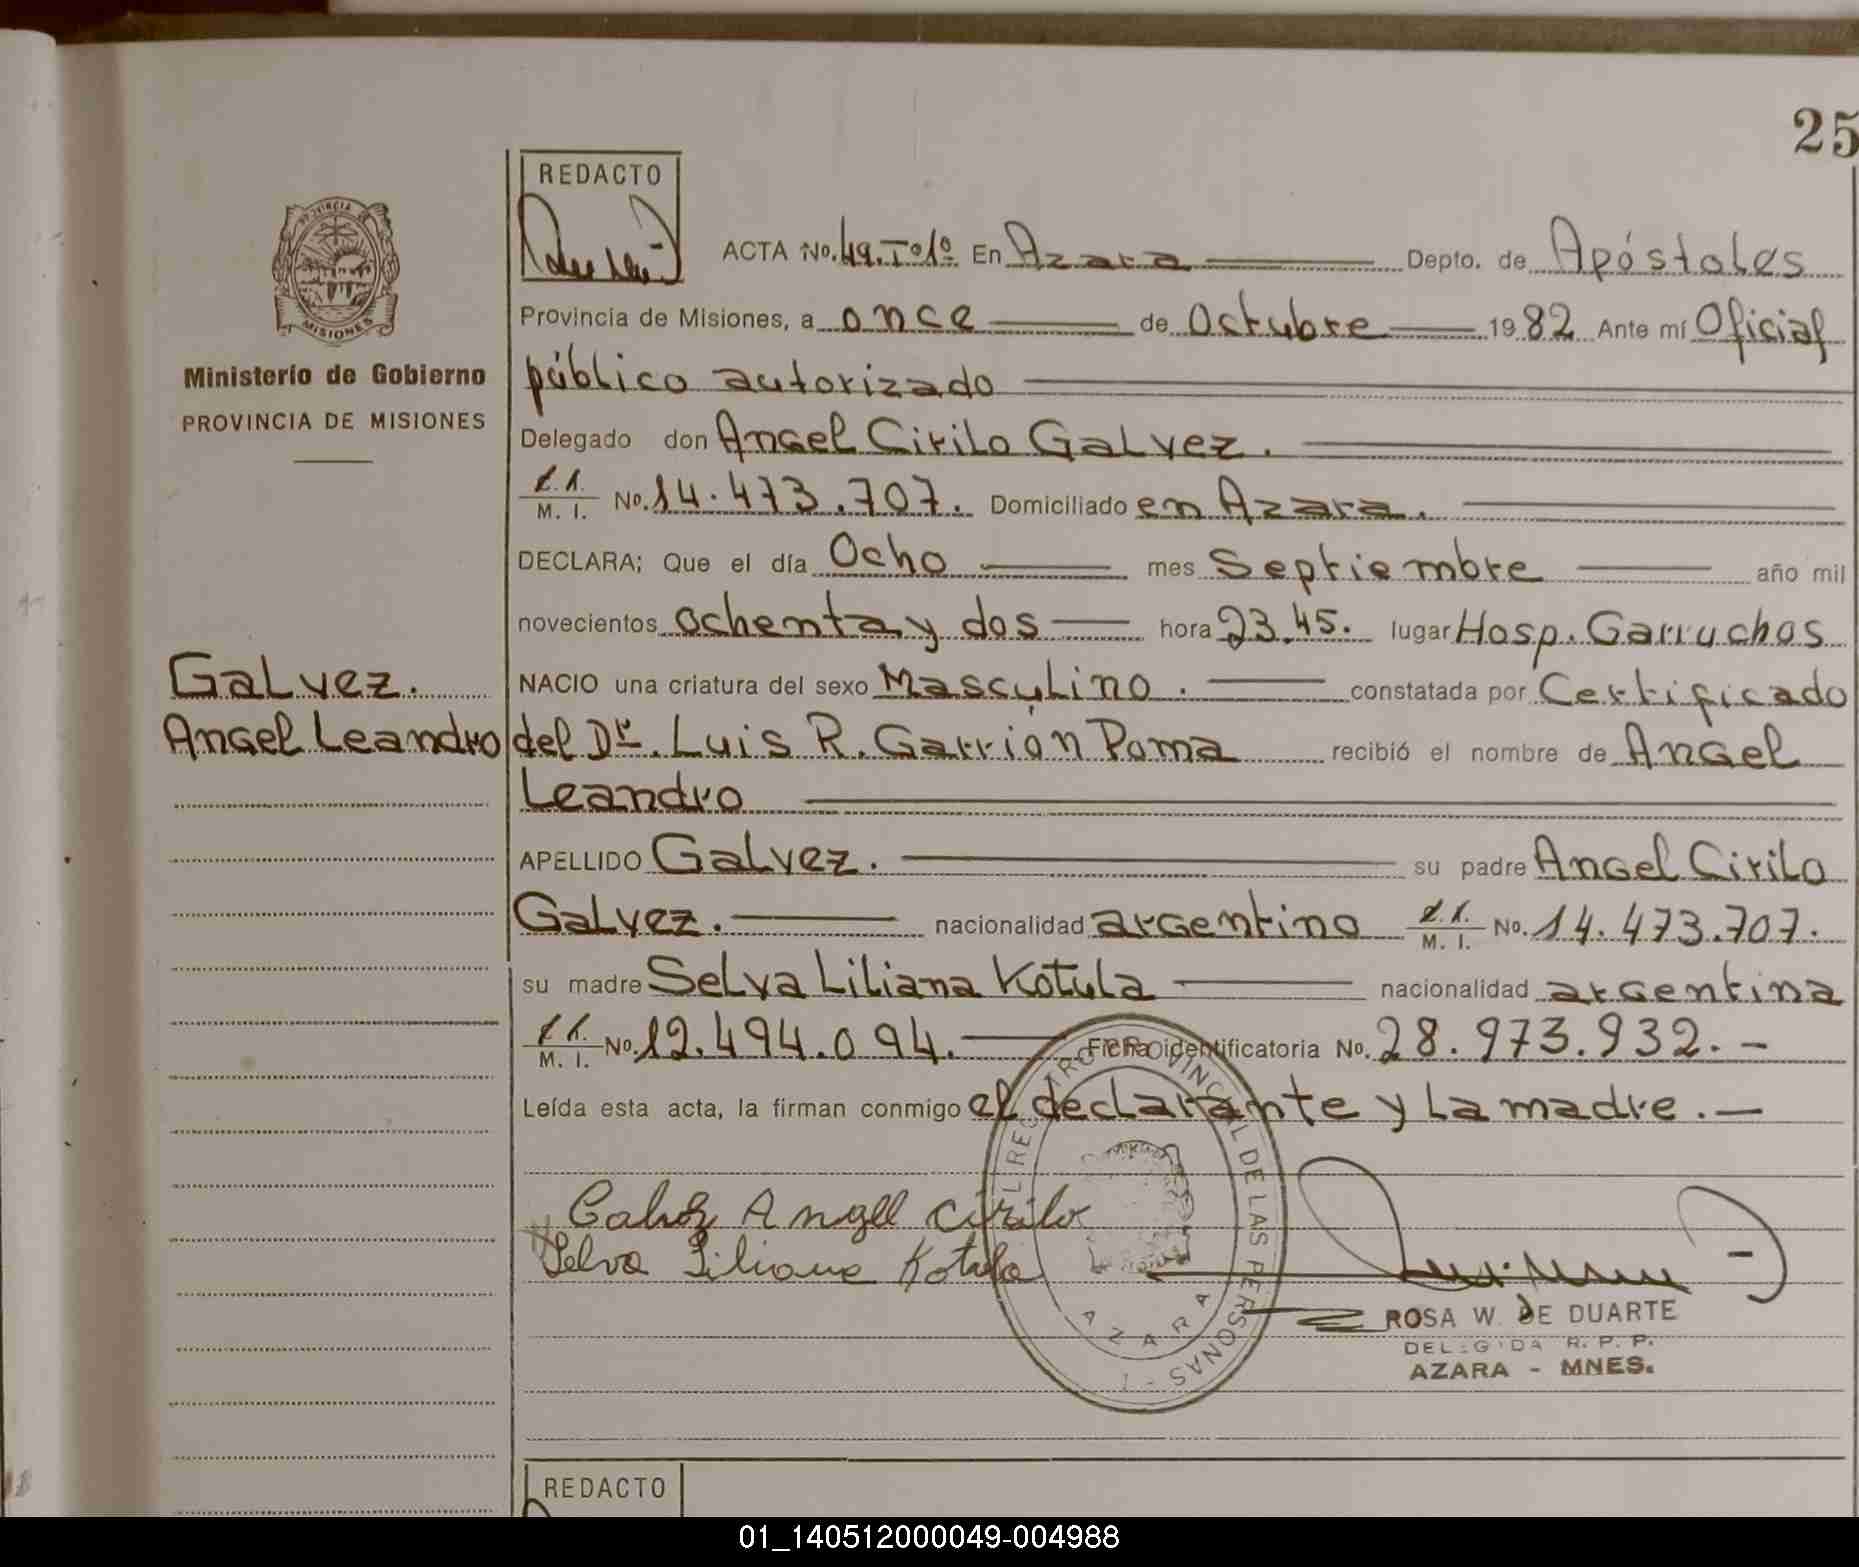 25
REDACTO
PROVINCIA DE
MISIONES
Ministerio de Gobierno
PROVINCIA DE MISIONES
Galvez.
Angel Leandro
ACTA No. 49.Tº1º En Azara Depto. de Apóstoles
Provincia de Misiones, a once de Octubre 1982 Ante mí Oficial
público autorizado
Delegado don Angel Cirilo Galvez.
M. I. No. 14.473.707. Domiciliado en Azara.
DECLARA; Que el día Ocho mes Septiembre año mil
novecientos ochenta y dos hora 23.45. lugar Hosp. Garruchos
NACIO una criatura del sexo Masculino. constatada por Certificado
del Dr. Luis R. Garrión Poma recibió el nombre de Angel
Leandro
APELLIDO Galvez. su padre Angel Cirilo
Galvez. nacionalidad argentino M. I. No. 14.473.707.
su madre Selva Liliana Kotula nacionalidad argentina
M. I. No. 12.494.094. Ficha identificatoria No. 28.973.932. -
Leída esta acta, la firman conmigo el declarante y la madre. -
Galvez Angel Cirilo
Selva Liliana Kotula
REGISTRO PROVINCIAL DE LAS PERSONAS - 1
AZARA
ROSA W. DE DUARTE
DELEGADA R. P. P.
AZARA - MNES.
REDACTO
01_140512000049-004988